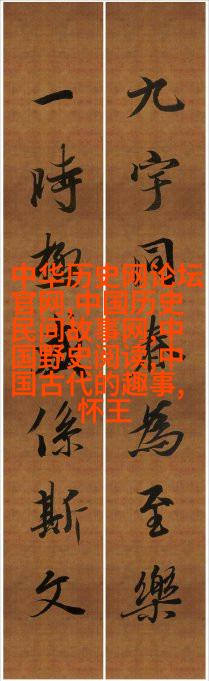 九宇同春為至樂
一時極係斯文
中华历史网论坛
官网,中国历史
民间故事网,中
国野史阅读,中
国古代的趣事,
怀王